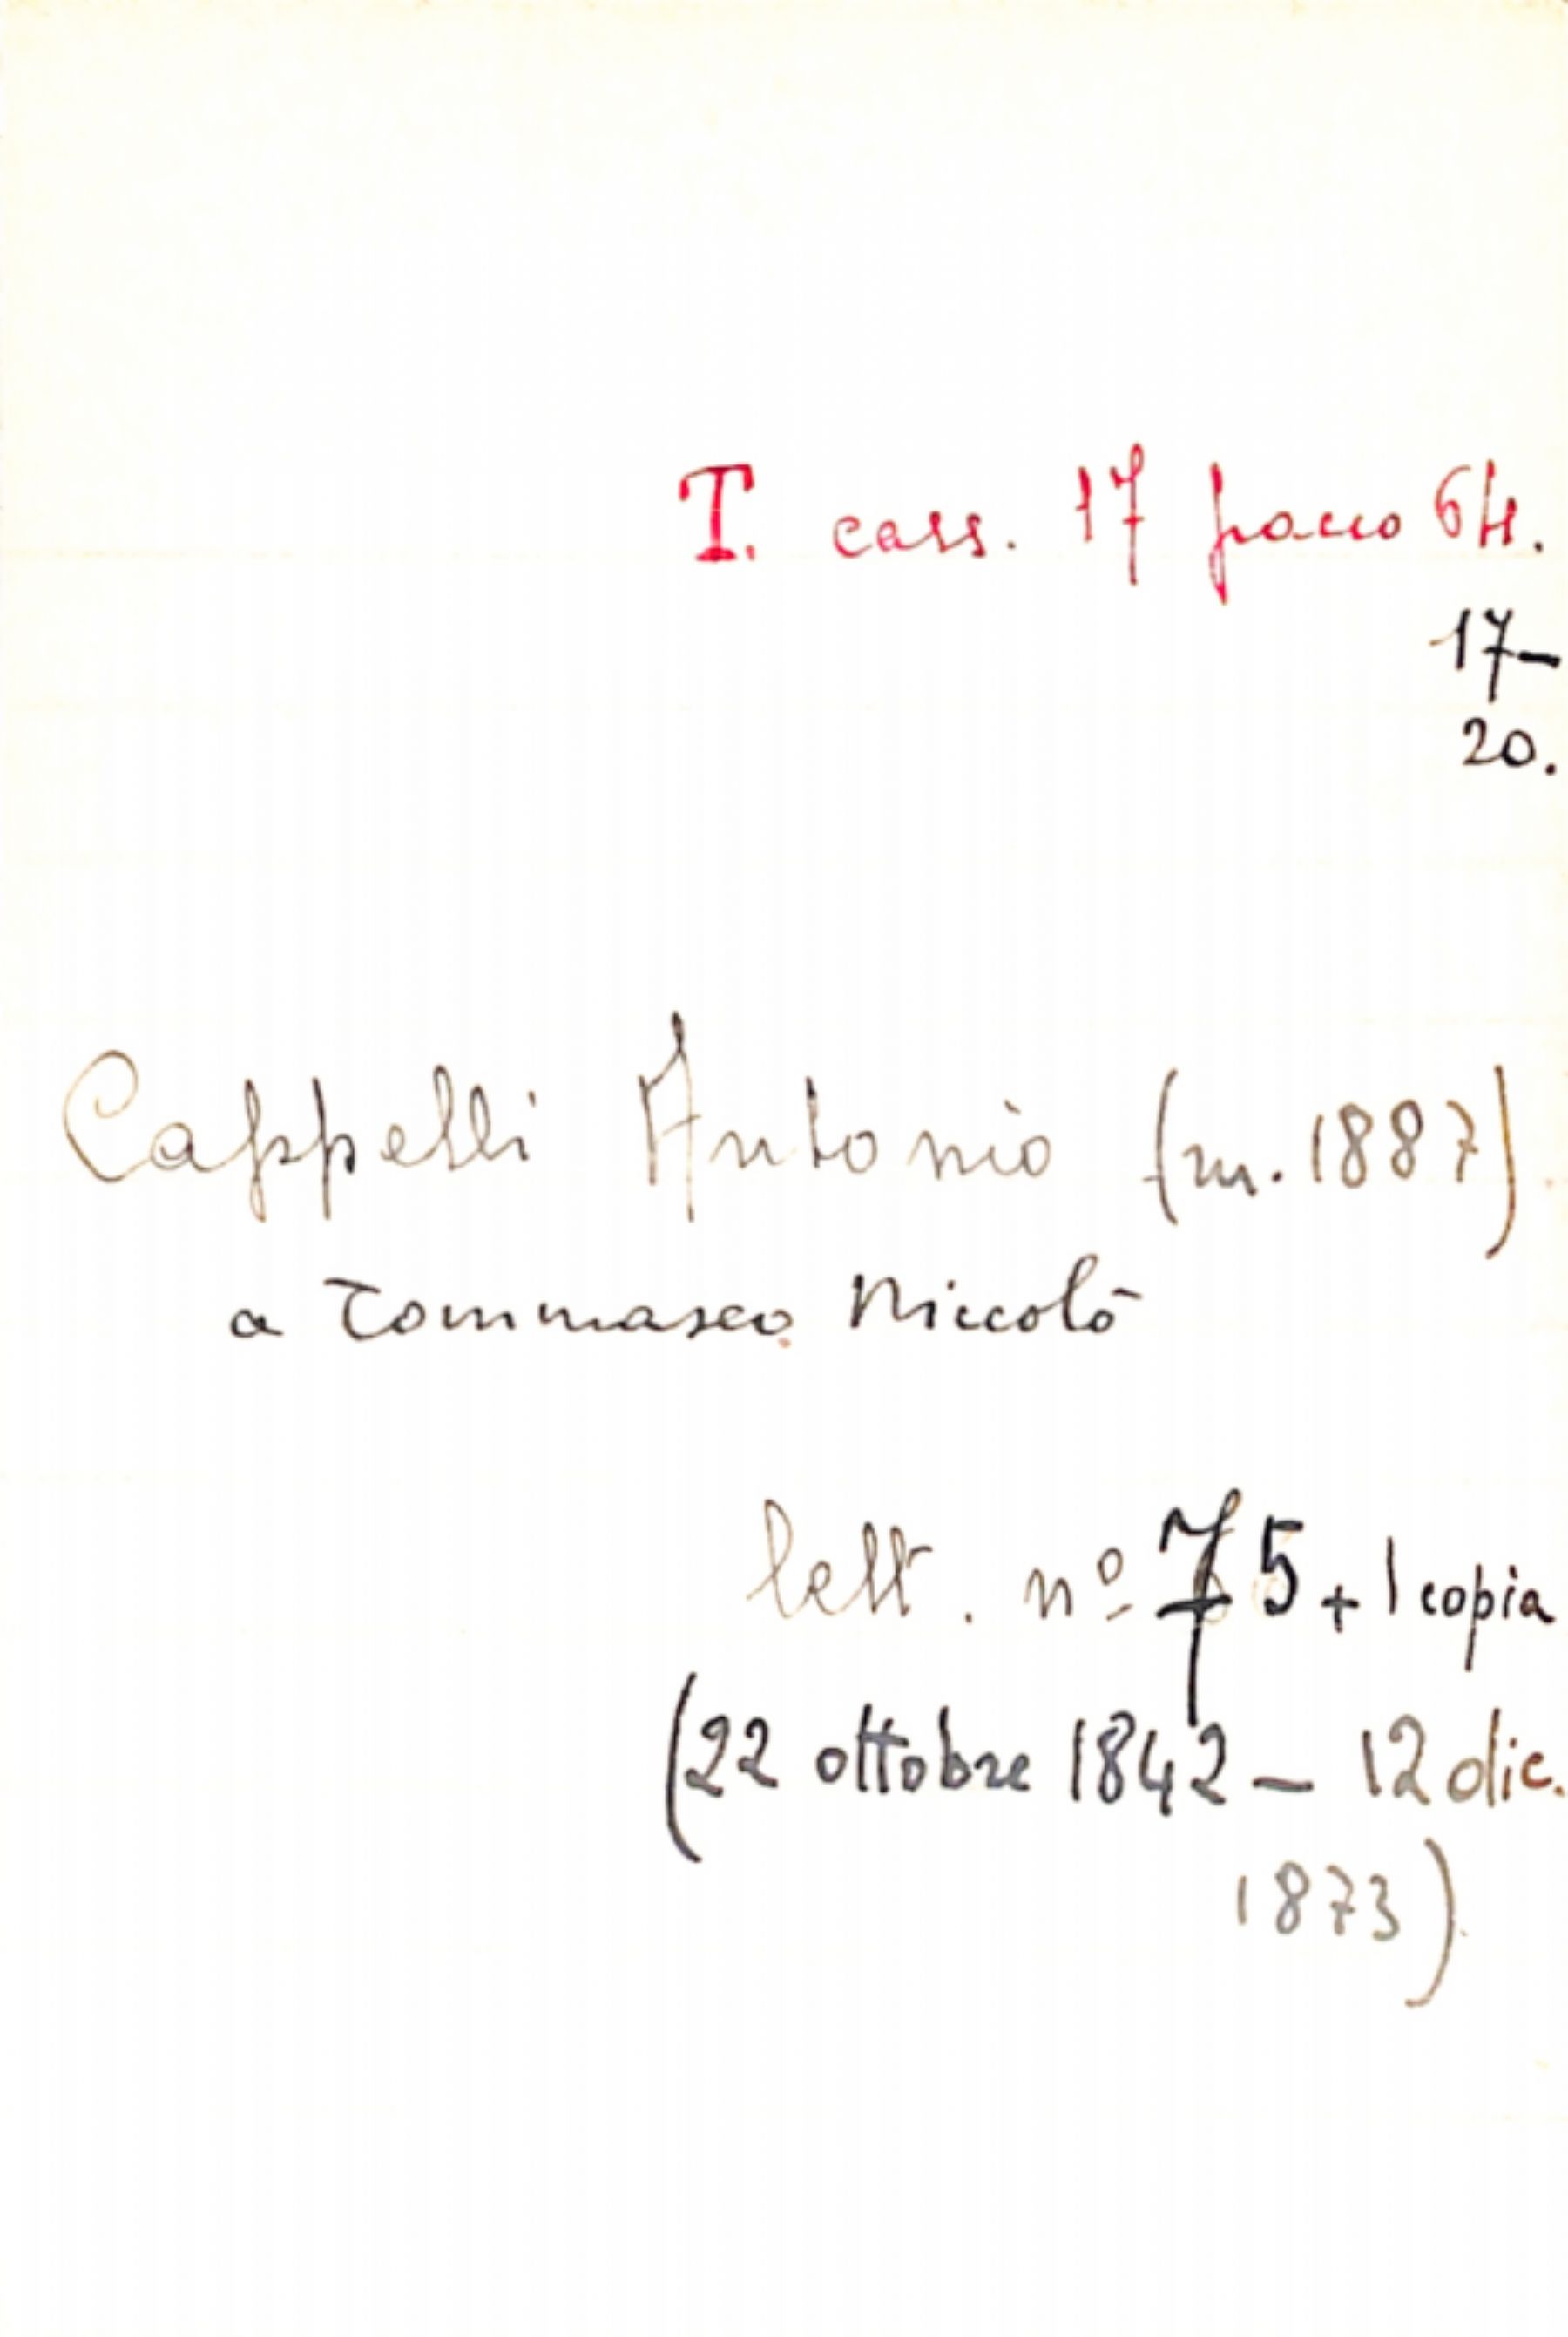 T. cass. 17 pacco 64.
17-
20.
Cappelli Antonio (m. 1887)
a Tommaseo Niccolò
lett. nº 75 + 1 copia
(22 ottobre 1842 - 12 dic.
1873)